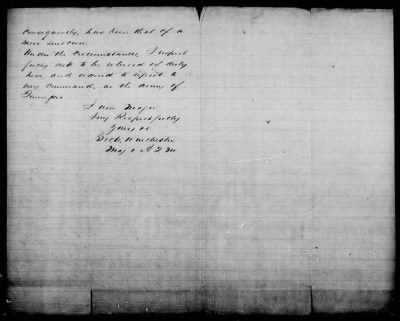 Consequently, has been that of a
mere
Under the circumstances, I respect
fully ask to be relieved of duty
here and ordered to report to
my command, in the Army of
Tennessee
I am Major
Very Respectfully
Yours &c
Winchester
Maj & A Q M